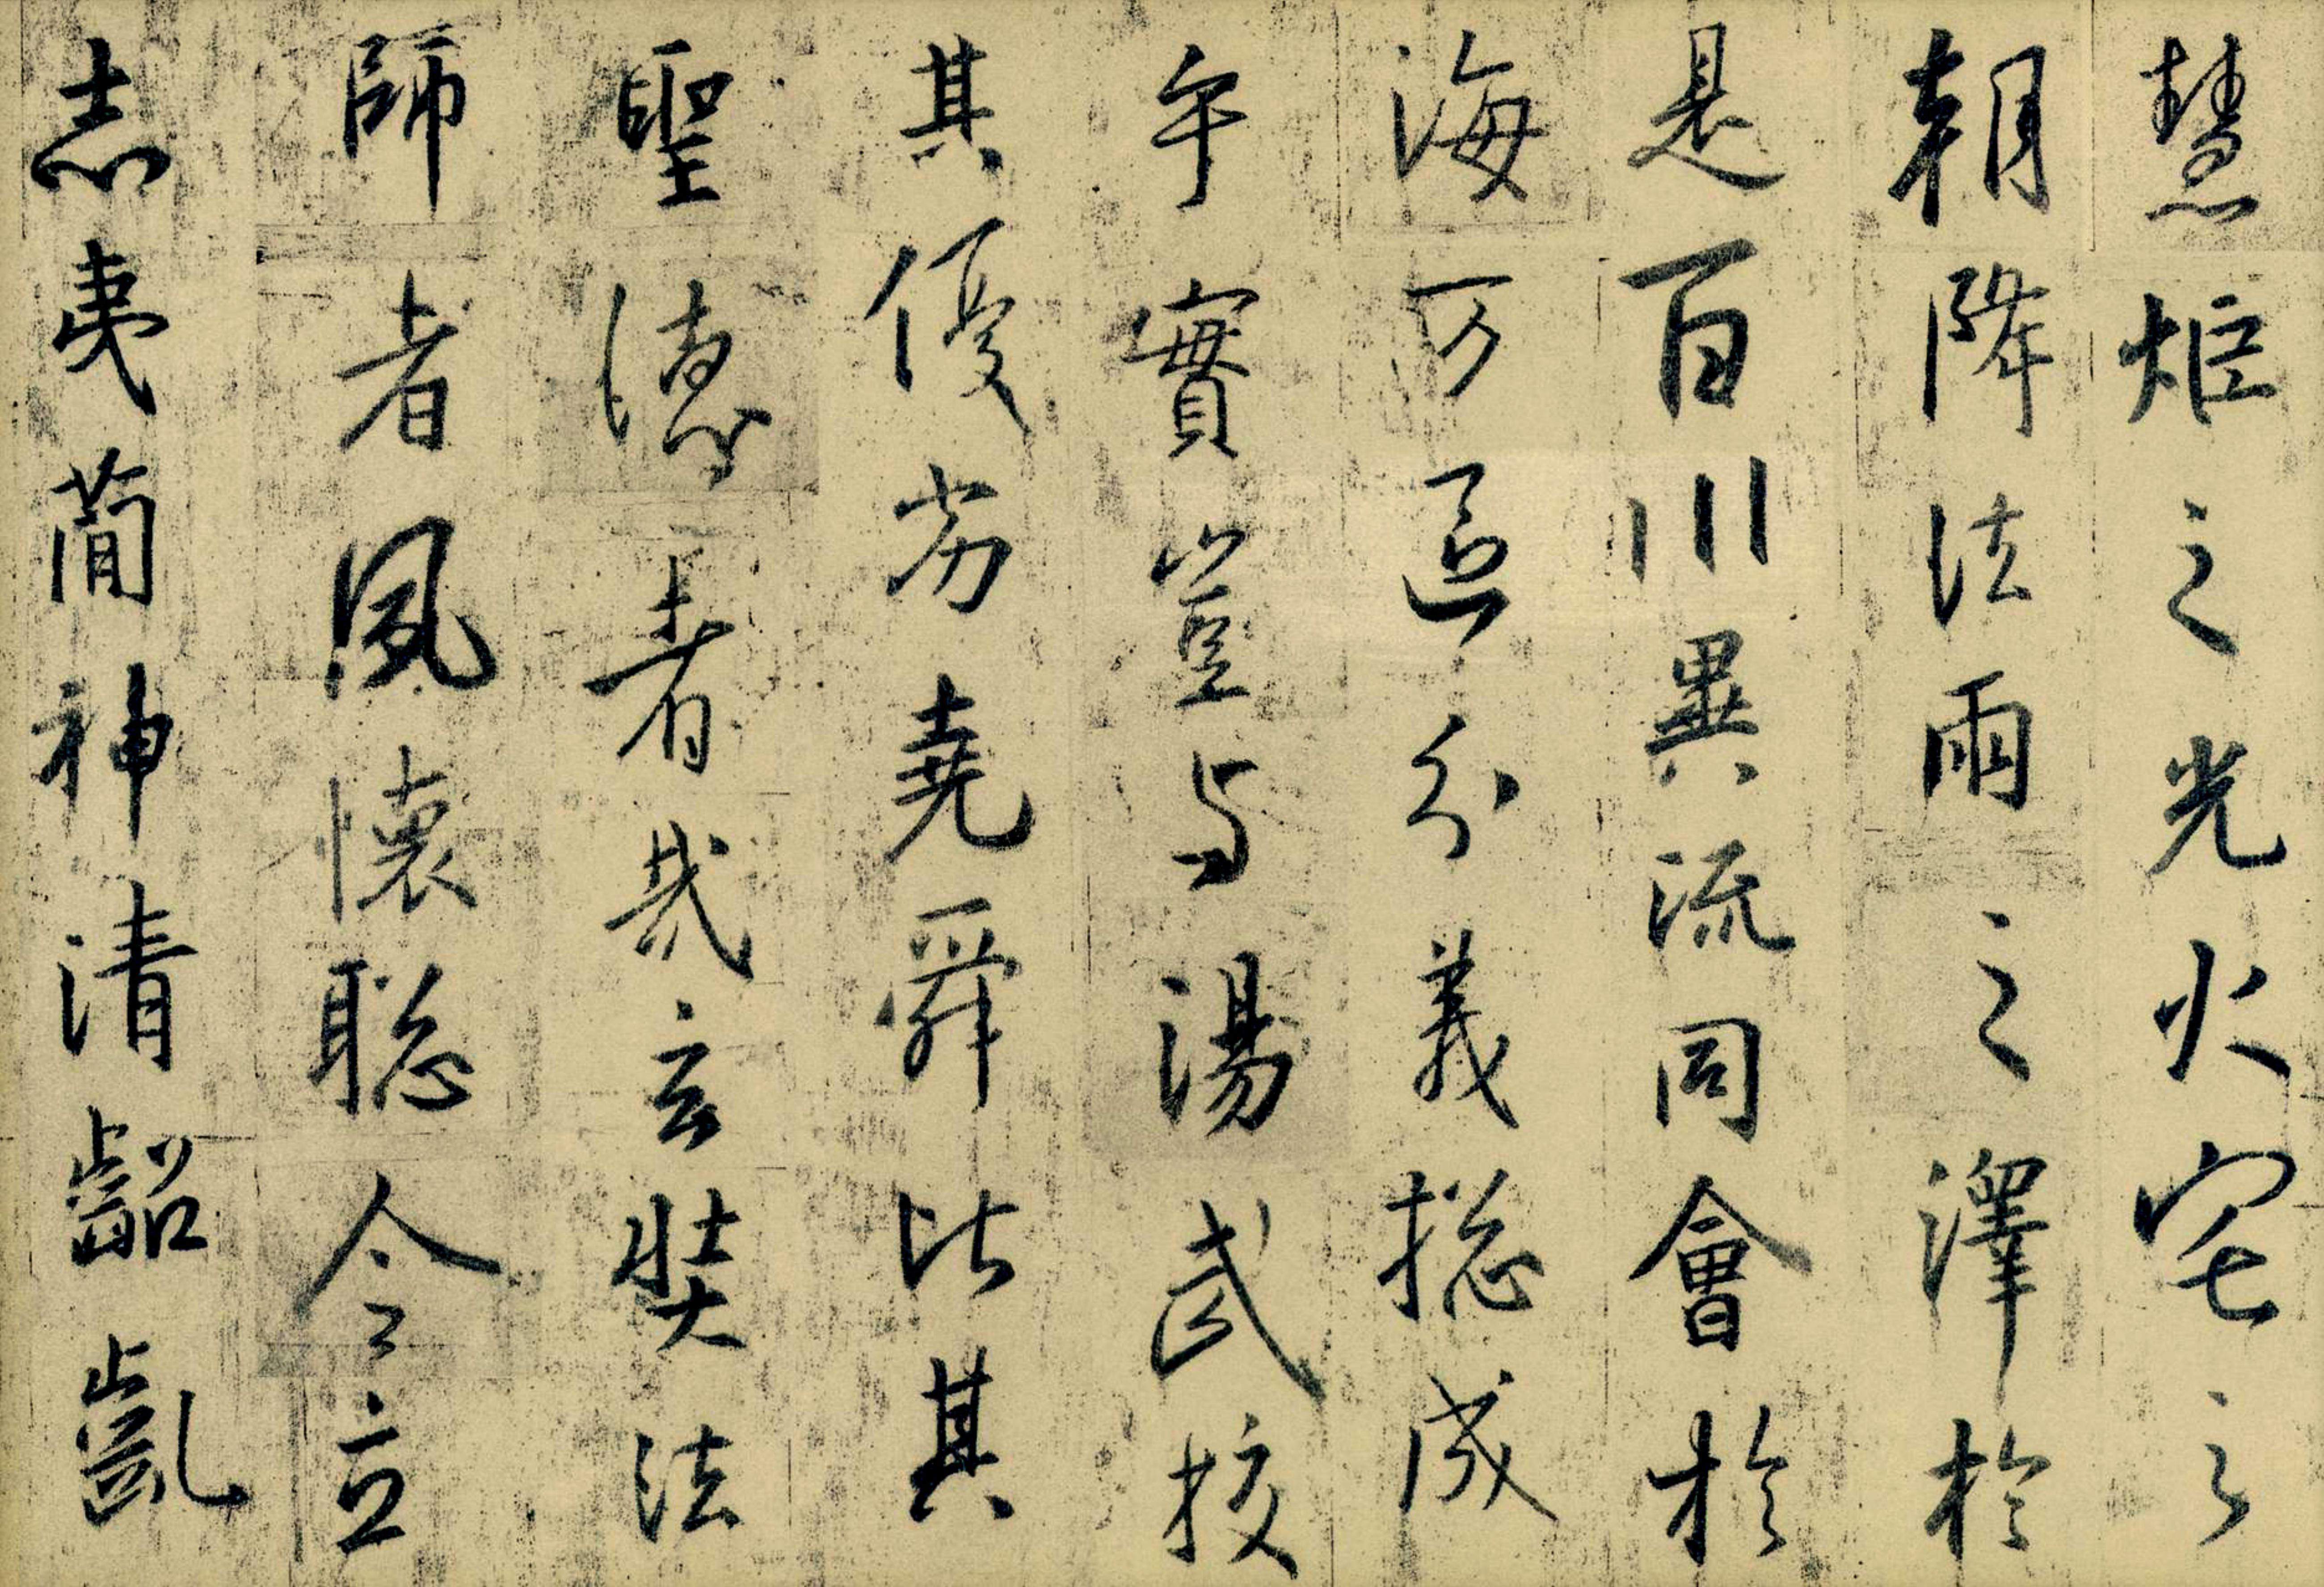 慧炬之光火宅之
朝降法雨之澤於
是百川異流同會於
海万區分義揔成
乎實豈与湯武挍
其優劣堯舜比其
聖德者哉玄奘法
師者夙懷聡令立
志夷蕳神清齠齔